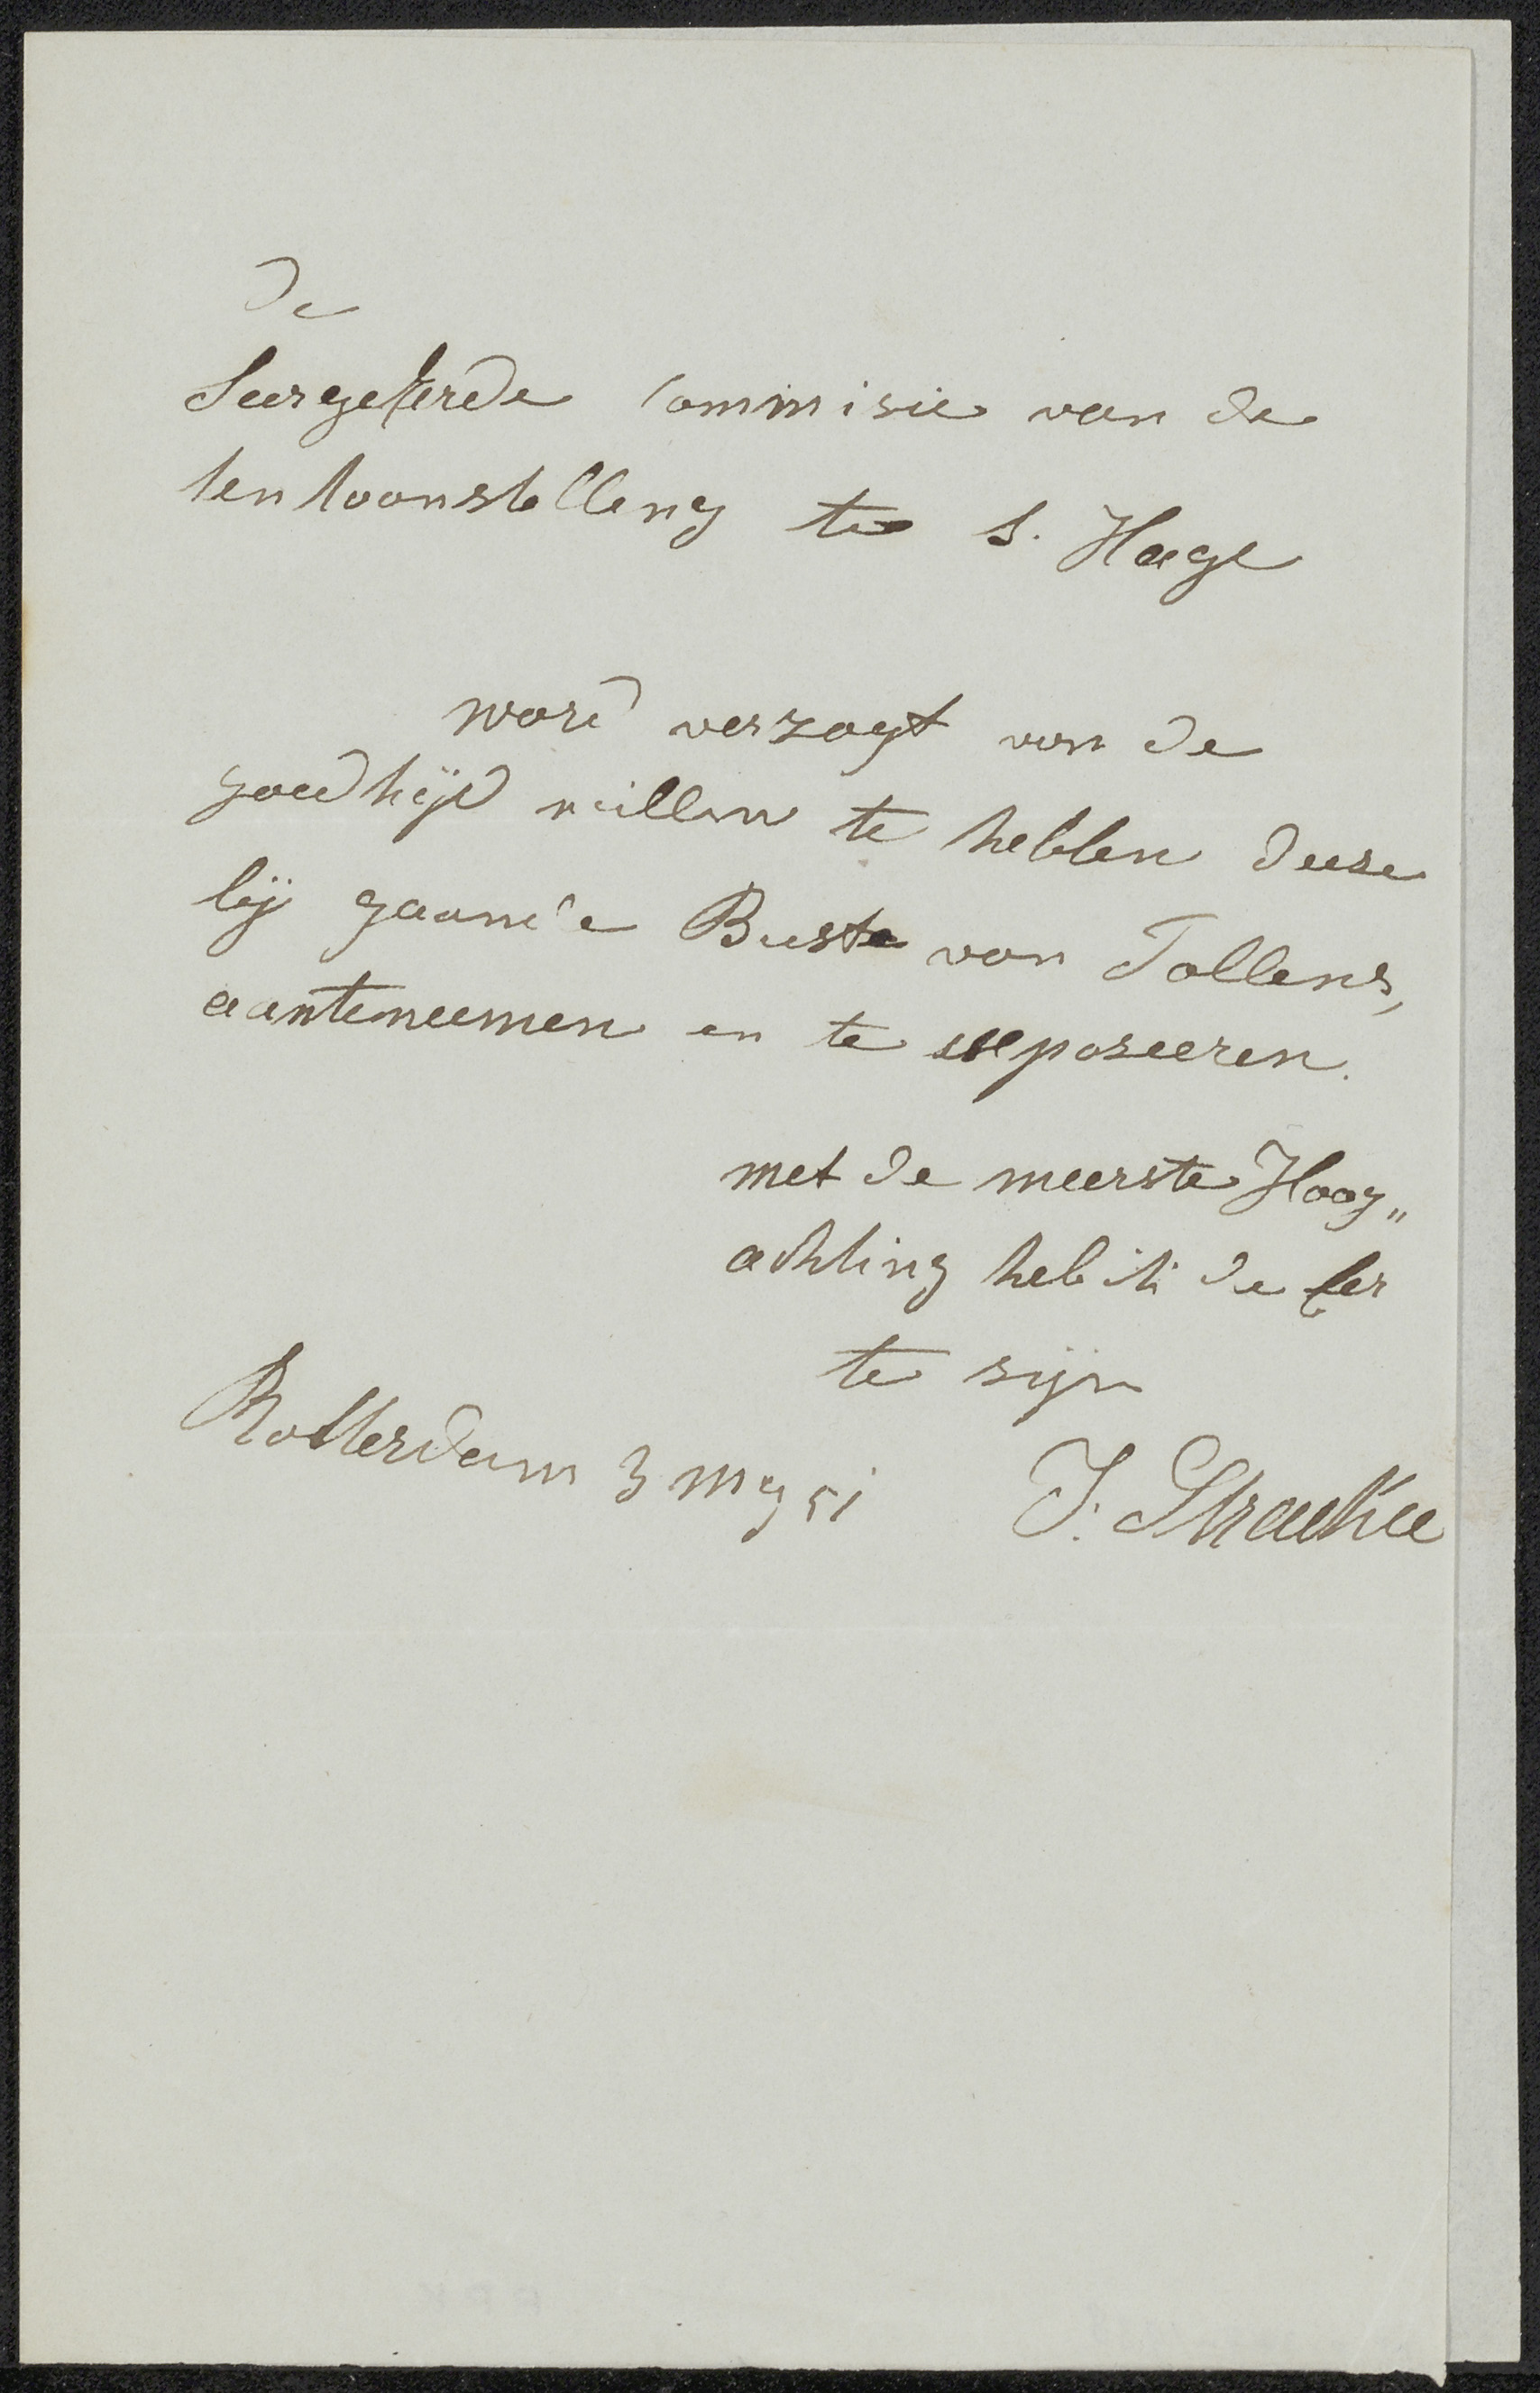 De
Seergeëerde Commisie van de
tentoonstelleng te S. Hage
word verzogt van de
goedhijd willen te hebben deese
bij gaande Buste van Tollens,
aanteneemen en te exposeeren.
met de meerste Hoog„
achting heb ik de Eer
te zijn
Rotterdam 3 my 51 J. Stracké